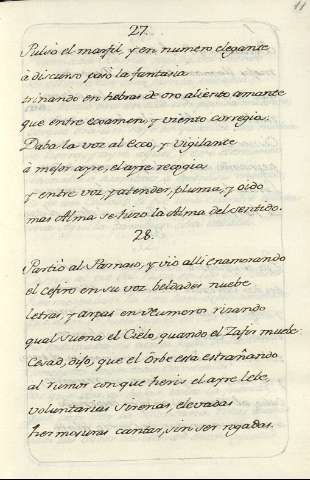 11
27.
Pulsó el marfil, y en numero elegante
à discurso pasó la fantasia
trinando en hebras de oro aliento amante
que entre examen, y viento corregia.
Daba la voz al Ecco, y vigilante
à mejor ayre, el ayre recogia
y entre voz, y atender, pluma, y oido
mas Alma se hizo la Alma del sentido.
28.
Partio al Parnaso, y vio alli enamorando
el cefiro en su voz beldades nuebe
letras, y arpas en numeros rizando
qual suena el Cielo, quando el Zafir muebe.
Cesad, dijo, que el Orbe está estrañando
al rumor con que heris el ayre lebe,
voluntarias sirenas, elevadas
hermosuras cantar, sin ser rogadas.